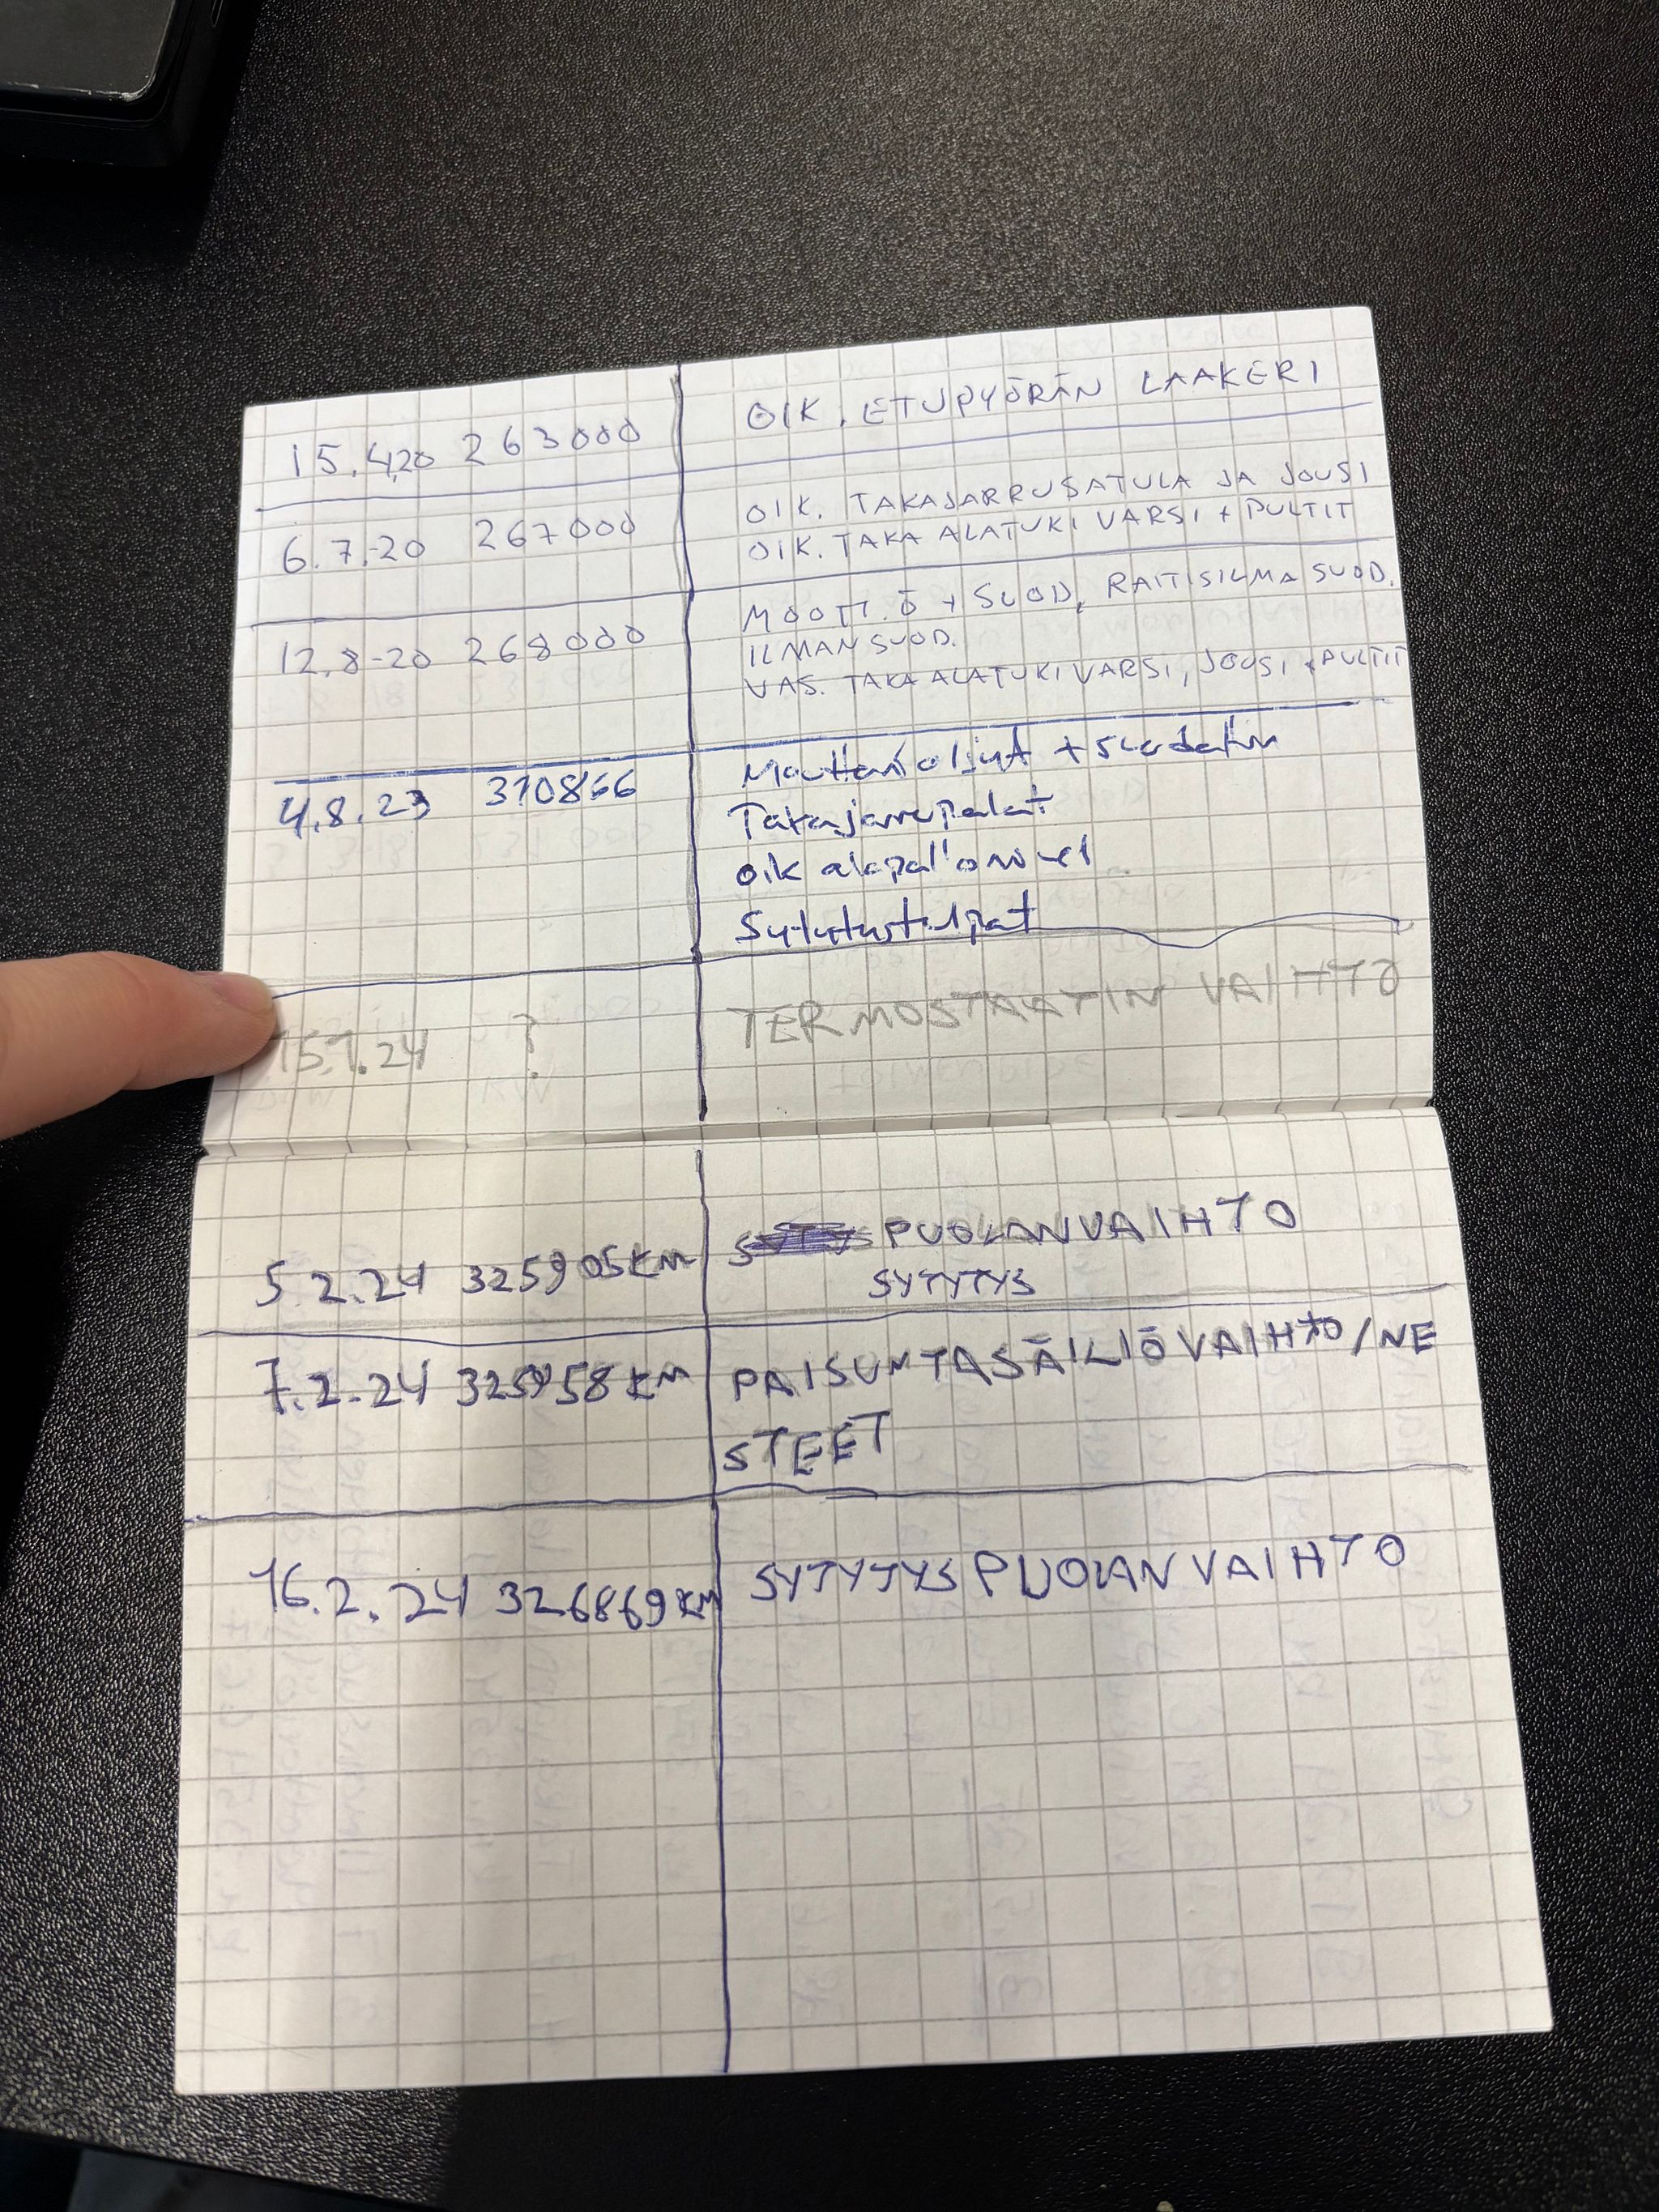 15.4.20 263000 OIK. ETUPYÖRÄN LAAKERI
6.7.-20 267000 OIK. TAKAJARRUSATULA JA JOUSI
OIK. TAKA ALATUKIVARSI + PULTIT
12.8-20 268000 MOOTT.Ö + SUOD, RAITISILMA SUOD.
ILMANSUOD.
VAS. TAKA ALATUKIVARSI, JOUSI + PULTIT
4.8.23 310866 Moottoriöljyt + suodatin
Takajarrupalat
oik alapallonivel
Sytytystulpat
15.1.24 ? TERMOSTAATIN VAIHTO
5.2.24 325905KM PUOLANVAIHTO
SYTYTYS
7.2.24 325958KM PAISUNTASÄILIÖ VAIHTO/NE
STEET
16.2.24 326869KM SYTYTYSPUOLAN VAIHTO